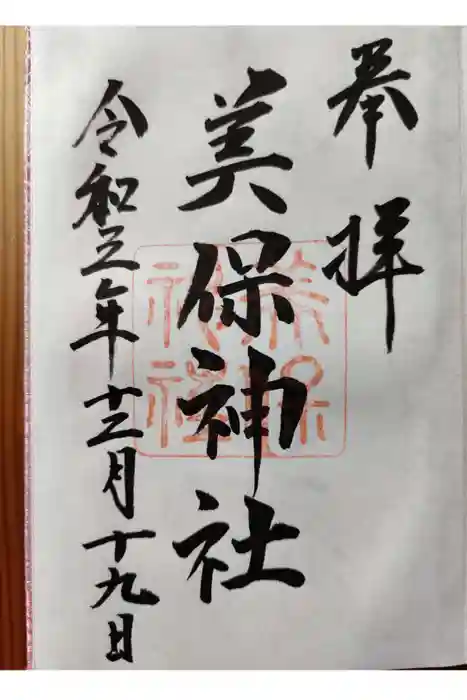 奉拝
美保神社
令和五年十二月十九日
美保
神社